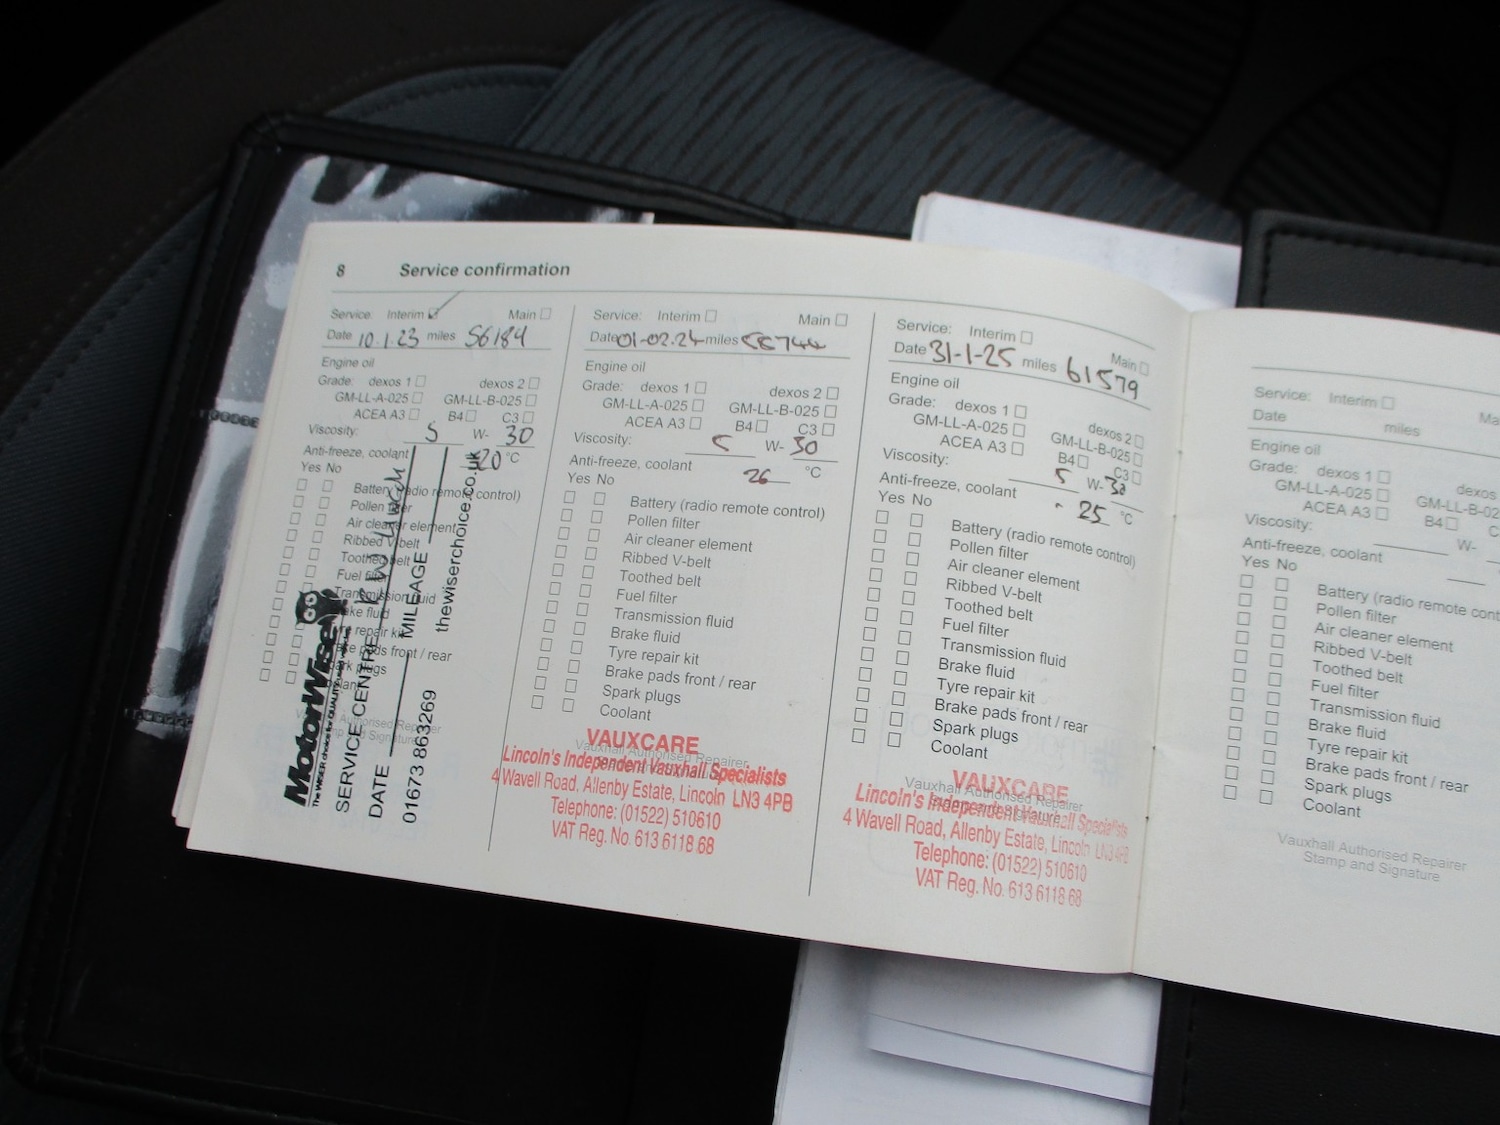 8 Service confirmation
Service: Interim ☑ Main ☐
Date 10.1.23 miles 56184
Engine oil
Grade: dexos 1 ☐ dexos 2 ☐
GM-LL-A-025 ☐ GM-LL-B-025 ☐
ACEA A3 ☐ B4 ☐ C3 ☐
Viscosity: 5 W- 30
Anti-freeze, coolant -20 °C
Yes No
☐ ☐ Battery (radio remote control)
☐ ☐ Pollen filter
☐ ☐ Air cleaner element
☐ ☐ Ribbed V-belt
☐ ☐ Toothed belt
☐ ☐ Fuel filter
☐ ☐ Transmission fluid
☐ ☐ Brake fluid
☐ ☐ Tyre repair kit
☐ ☐ Brake pads front / rear
☐ ☐ Spark plugs
☐ ☐ Coolant
Vauxhall Authorised Repairer
Stamp and Signature
MotorWise
The WISER choice for QUALITY
SERVICE CENTRE
DATE MILEAGE
01673 863269 thewiserchoice.co.uk
Service: Interim ☐ Main ☐
Date 01-02.24 miles 58744
Engine oil
Grade: dexos 1 ☐ dexos 2 ☐
GM-LL-A-025 ☐ GM-LL-B-025 ☐
ACEA A3 ☐ B4 ☐ C3 ☐
Viscosity: 5 W- 30
Anti-freeze, coolant 26 °C
Yes No
☐ ☐ Battery (radio remote control)
☐ ☐ Pollen filter
☐ ☐ Air cleaner element
☐ ☐ Ribbed V-belt
☐ ☐ Toothed belt
☐ ☐ Fuel filter
☐ ☐ Transmission fluid
☐ ☐ Brake fluid
☐ ☐ Tyre repair kit
☐ ☐ Brake pads front / rear
☐ ☐ Spark plugs
☐ ☐ Coolant
Vauxhall Authorised Repairer
VAUXCARE
Lincoln's Independent Vauxhall Specialists
4 Wavell Road, Allenby Estate, Lincoln LN3 4PB
Telephone: (01522) 510610
VAT Reg. No. 613 6118 68
Service: Interim ☐ Main ☐
Date 31-1-25 miles 61579
Engine oil
Grade: dexos 1 ☐ dexos 2 ☐
GM-LL-A-025 ☐ GM-LL-B-025 ☐
ACEA A3 ☐ B4 ☐ C3 ☐
Viscosity: 5 W- 30
Anti-freeze, coolant - 25 °C
Yes No
☐ ☐ Battery (radio remote control)
☐ ☐ Pollen filter
☐ ☐ Air cleaner element
☐ ☐ Ribbed V-belt
☐ ☐ Toothed belt
☐ ☐ Fuel filter
☐ ☐ Transmission fluid
☐ ☐ Brake fluid
☐ ☐ Tyre repair kit
☐ ☐ Brake pads front / rear
☐ ☐ Spark plugs
☐ ☐ Coolant
Vauxhall Authorised Repairer
Stamp and Signature
VAUXCARE
Lincoln's Independent Vauxhall Specialists
4 Wavell Road, Allenby Estate, Lincoln LN3 4PB
Telephone: (01522) 510610
VAT Reg. No. 613 6118 68
Service: Interim ☐ Ma
Date miles
Engine oil
Grade: dexos 1 ☐ dexos
GM-LL-A-025 ☐ GM-LL-B-02
ACEA A3 ☐ B4 ☐ C3
Viscosity: W-
Anti-freeze, coolant
Yes No
☐ ☐ Battery (radio remote cont
☐ ☐ Pollen filter
☐ ☐ Air cleaner element
☐ ☐ Ribbed V-belt
☐ ☐ Toothed belt
☐ ☐ Fuel filter
☐ ☐ Transmission fluid
☐ ☐ Brake fluid
☐ ☐ Tyre repair kit
☐ ☐ Brake pads front / rear
☐ ☐ Spark plugs
☐ ☐ Coolant
Vauxhall Authorised Repairer
Stamp and Signature